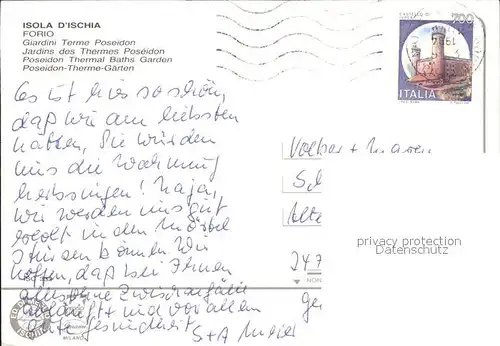 ISOLA D'ISCHIA
FORIO
Giardini Terme Poseidon
Jardins des Thermes Poséidon
Poseidon Thermal Baths Garden
Poseidon-Therme-Gärten
700
1984
ITALIA
Es ist hier so schön,
daß wir am liebsten
hätten, Sie würden
uns die Wohnung
herbringen! Naja,
wir werden uns gut
erholt in den
stürzen können. Wir
hoffen, daß bei Ihnen
alles ohne Zwischenfälle
und vor allem
Gesundheit
S+A Meier
Volker + Maren
Sch
Alte
247
NON
ger
privacy protection
Datenschutz
MILANO